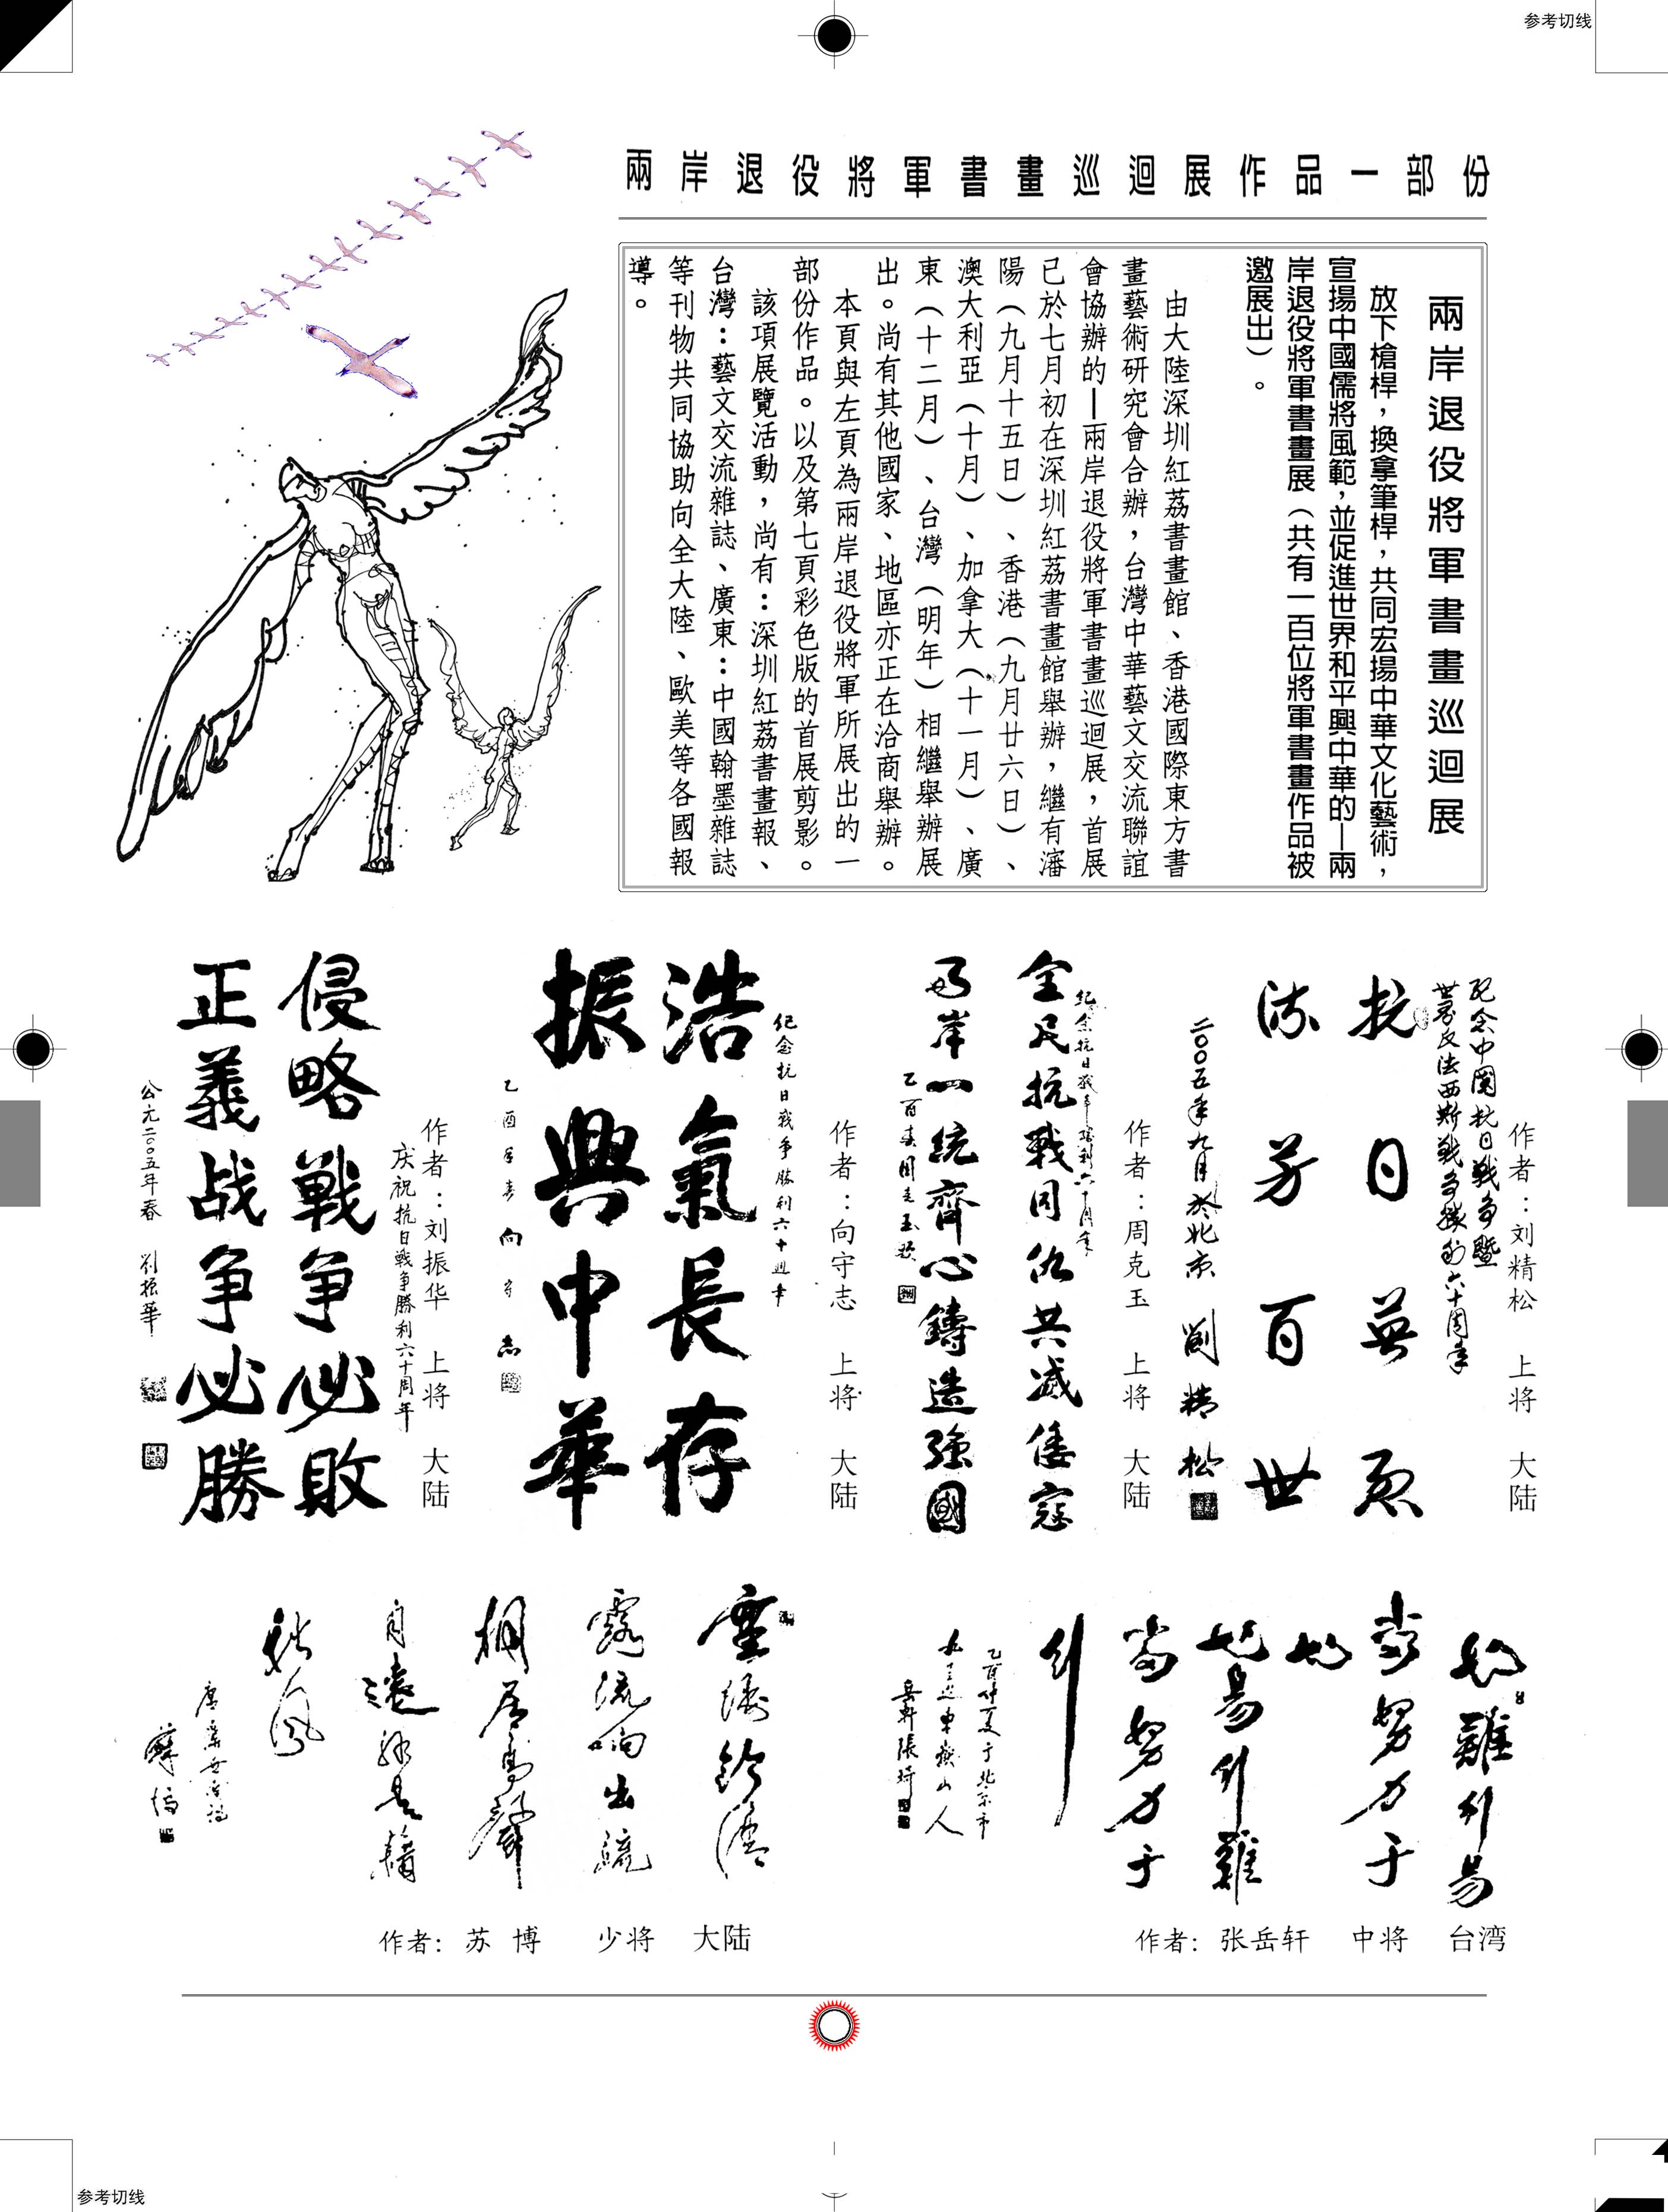 参考切线
兩岸退役將軍書畫巡迴展作品一部份
兩岸退役將軍書畫巡迴展
放下槍桿，換拿筆桿，共同宏揚中華文化藝術，
宣揚中國儒將風範，並促進世界和平興中華的—兩
岸退役將軍書畫展（共有一百位將軍書畫作品被
邀展出）。
由大陸深圳紅荔書畫館、香港國際東方書
畫藝術研究會合辦，台灣中華藝文交流聯誼
會協辦的—兩岸退役將軍書畫巡迴展，首展
已於七月初在深圳紅荔書畫館舉辦，繼有瀋
陽（九月十五日）、香港（九月廿六日）、
澳大利亞（十月）、加拿大（十一月）、廣
東（十二月）、台灣（明年）相繼舉辦展
出。尚有其他國家、地區亦正在洽商舉辦。
本頁與左頁為兩岸退役將軍所展出的一
部份作品。以及第七頁彩色版的首展剪影。
該項展覽活動，尚有：深圳紅荔書畫報、
台灣：藝文交流雜誌、廣東：中國翰墨雜誌
等刊物共同協助向全大陸、歐美等各國報
導。
作者：刘精松　上将　大陆
纪念中国抗日战争暨
世界反法西斯战争胜利六十周年
抗日英烈
流芳百世
二〇〇五年九月於北京　劉精松
作者：周克玉　上将　大陆
纪念抗日战争胜利六十周年
全民抗戰同仇共滅倭寇
两岸一統齊心鑄造强國
乙酉春周克玉
作者：向守志　上将　大陆
纪念抗日战争勝利六十週年
浩氣長存
振興中華
乙酉年春　向守志
作者：刘振华　上将　大陆
庆祝抗日戰争勝利六十周年
侵略戰争必敗
正義战争必勝
公元二〇〇五年春　刘振華
知難行易
當努力于
知
知易行難
當努力于
行
乙酉仲夏于北京市
九十三叟東嶽山人
岳軒張琦
作者：张岳轩　中将　台湾
垂緌飲清
露流响出疏
桐居高聲
自遠非是藉
秋風
唐虞世南詩
蘇博
作者：苏　博　少将　大陆
参考切线